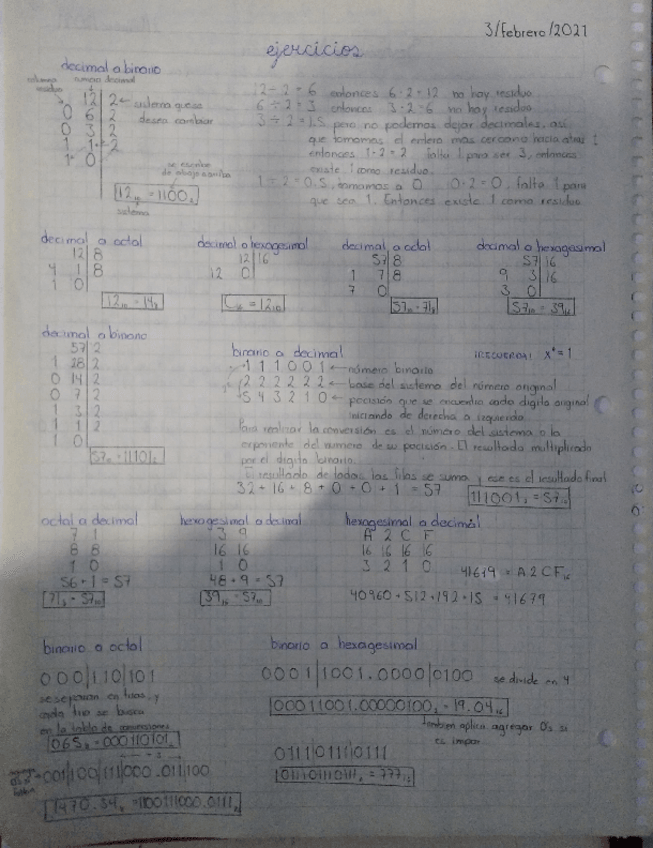 3/febrero/2021
ejercicios
decimal a binario
residuo
12 | 2 ← sistema que se
0 6 | 2 desea cambiar
0 3 | 2
1 1 | 2
1 0
se escribe
de abajo arriba
12₁₀ = 1100₂
sistema
12 ÷ 2 = 6 entonces 6·2 = 12 no hay residuo
6 ÷ 2 = 3 entonces 3·2 = 6 no hay residuo
3 ÷ 2 = 1.5 pero no podemos dejar decimales, así
que tomamos el entero más cercano hacia atrás 1
entonces 1·2 = 2 falta 1 para ser 3, entonces
existe 1 como residuo.
1 ÷ 2 = 0.5, tomamos a 0 0·2 = 0, falta 1 para
que sea 1. Entonces existe 1 como residuo
decimal a octal
12 | 8
4 1 | 8
1 0
12₁₀ = 14₈
decimal a hexagesimal
12 | 16
12 0
C₁₆ = 12₁₀
decimal a octal
57 | 8
1 7 | 8
7 0
57₁₀ = 71₈
decimal a hexagesimal
57 | 16
9 3 | 16
3 0
57₁₀ = 39₁₆
decimal a binario
57 | 2
1 28 | 2
0 14 | 2
0 7 | 2
1 3 | 2
1 1 | 2
1 0
binario a decimal
¡RECUERDA! x⁰ = 1
1 1 1 0 0 1 ← número binario
2 2 2 2 2 2 ← base del sistema del número original
5 4 3 2 1 0 ← pocisión que se encuentra cada digito original
iniciando de derecha a izquierda
Para realizar la conversión es el número del sistema a la
exponente del numero de su pocisión. El resultado multiplicado
por el digito binario.
El resultado de todas las filas se suma y ese es el resultado final
32 + 16 + 8 + 0 + 0 + 1 = 57
111001₂ = 57₁₀
octal a decimal
7 1
8 8
1 0
56 + 1 = 57
71₈ = 57₁₀
hexagesimal a decimal
3 9
16 16
1 0
48 + 9 = 57
39₁₆ = 57₁₀
hexagesimal a decimal
A 2 C F
16 16 16 16
3 2 1 0
41679 = A2CF₁₆
40960 + 512 + 192 + 15 = 41679
binario a octal
000|110|101
se separan en trios, y
cada trio se busca
en la tabla de conversiones
065₈ = 000110101₂
001|100|111|000.011|100
1470.34₈ = 1100111000.0111₂
binario a hexagesimal
0001|1001.0000|0100 se divide en 4
00011001.00000100₂ = 19.04₁₆
tambien aplica agregar 0's si
es impar
0111|0111|0111
011101110111₂ = 777₁₆